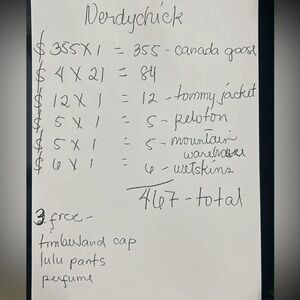 Nerdychick
$ 355 X 1 = 355 - canada goose
$ 4 X 21 = 84
$ 12 X 1 = 12 - tommy jacket
$ 5 X 1 = 5 - peloton
$ 5 X 1 = 5 - mountain
warehouse
$ 6 X 1 = 6 - wetskins
467 - total
3 free -
timberland cap
lulu pants
perfume